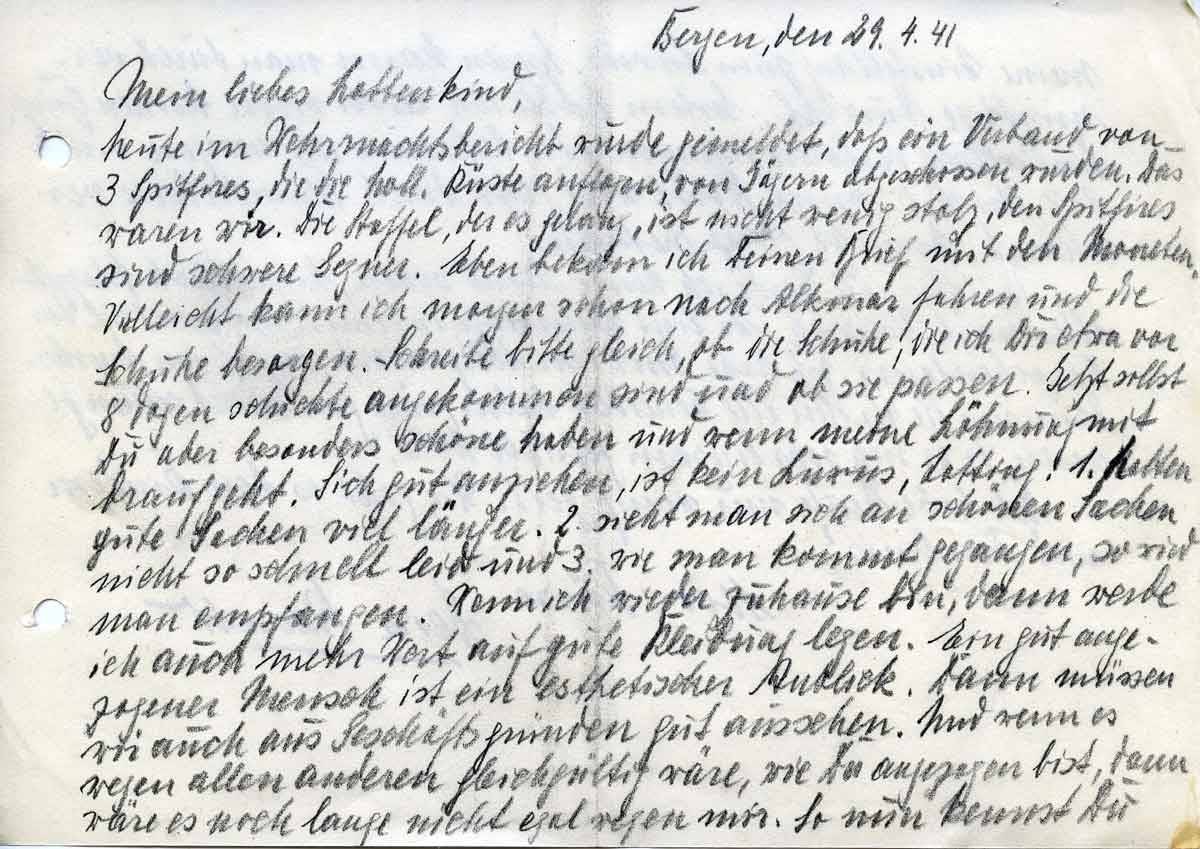 Bergen, den 29. 4. 41
Mein liebes Lottenkind,
heute im Wehrmachtsbericht wurde gemeldet, daß ein Verband von
3 Spitfires, die die holl. Küste anflogen, von Jägern abgeschossen wurden. Das
waren wir. Die Staffel, der es gelang, ist nicht wenig stolz, den Spitfires
sind schwere Gegner. Eben bekam ich Deinen Brief mit den Moneten.
Vielleicht kann ich morgen schon nach Alkmar fahren und die
Schuhe besorgen. Schreibe bitte gleich, ob die Schuhe, die ich Dir etwa vor
8 Tagen schickte angekommen sind und ob sie passen. Jetzt sollst
Du aber besonders schöne haben und wenn meine Löhnung mit
draufgeht. Sich gut anziehen, ist kein Luxus, Lotting! 1. halten
gute Sachen viel länger. 2. sieht man sich an schönen Sachen
nicht so schnell leid und 3. wie man kommt gegangen, so wird
man empfangen. Wenn ich wieder zuhause bin, dann werde
ich auch mehr Wert auf gute Kleidung legen. Ein gut ange-
zogener Mensch ist ein esthetischer Anblick. Dann müssen
wir auch aus Geschäftsgründen gut aussehen. Und wenn es
wegen allen anderen gleichgültig wäre, wie Du angezogen bist, dann
wäre es noch lange nicht egal wegen mir. So nun kennst Du